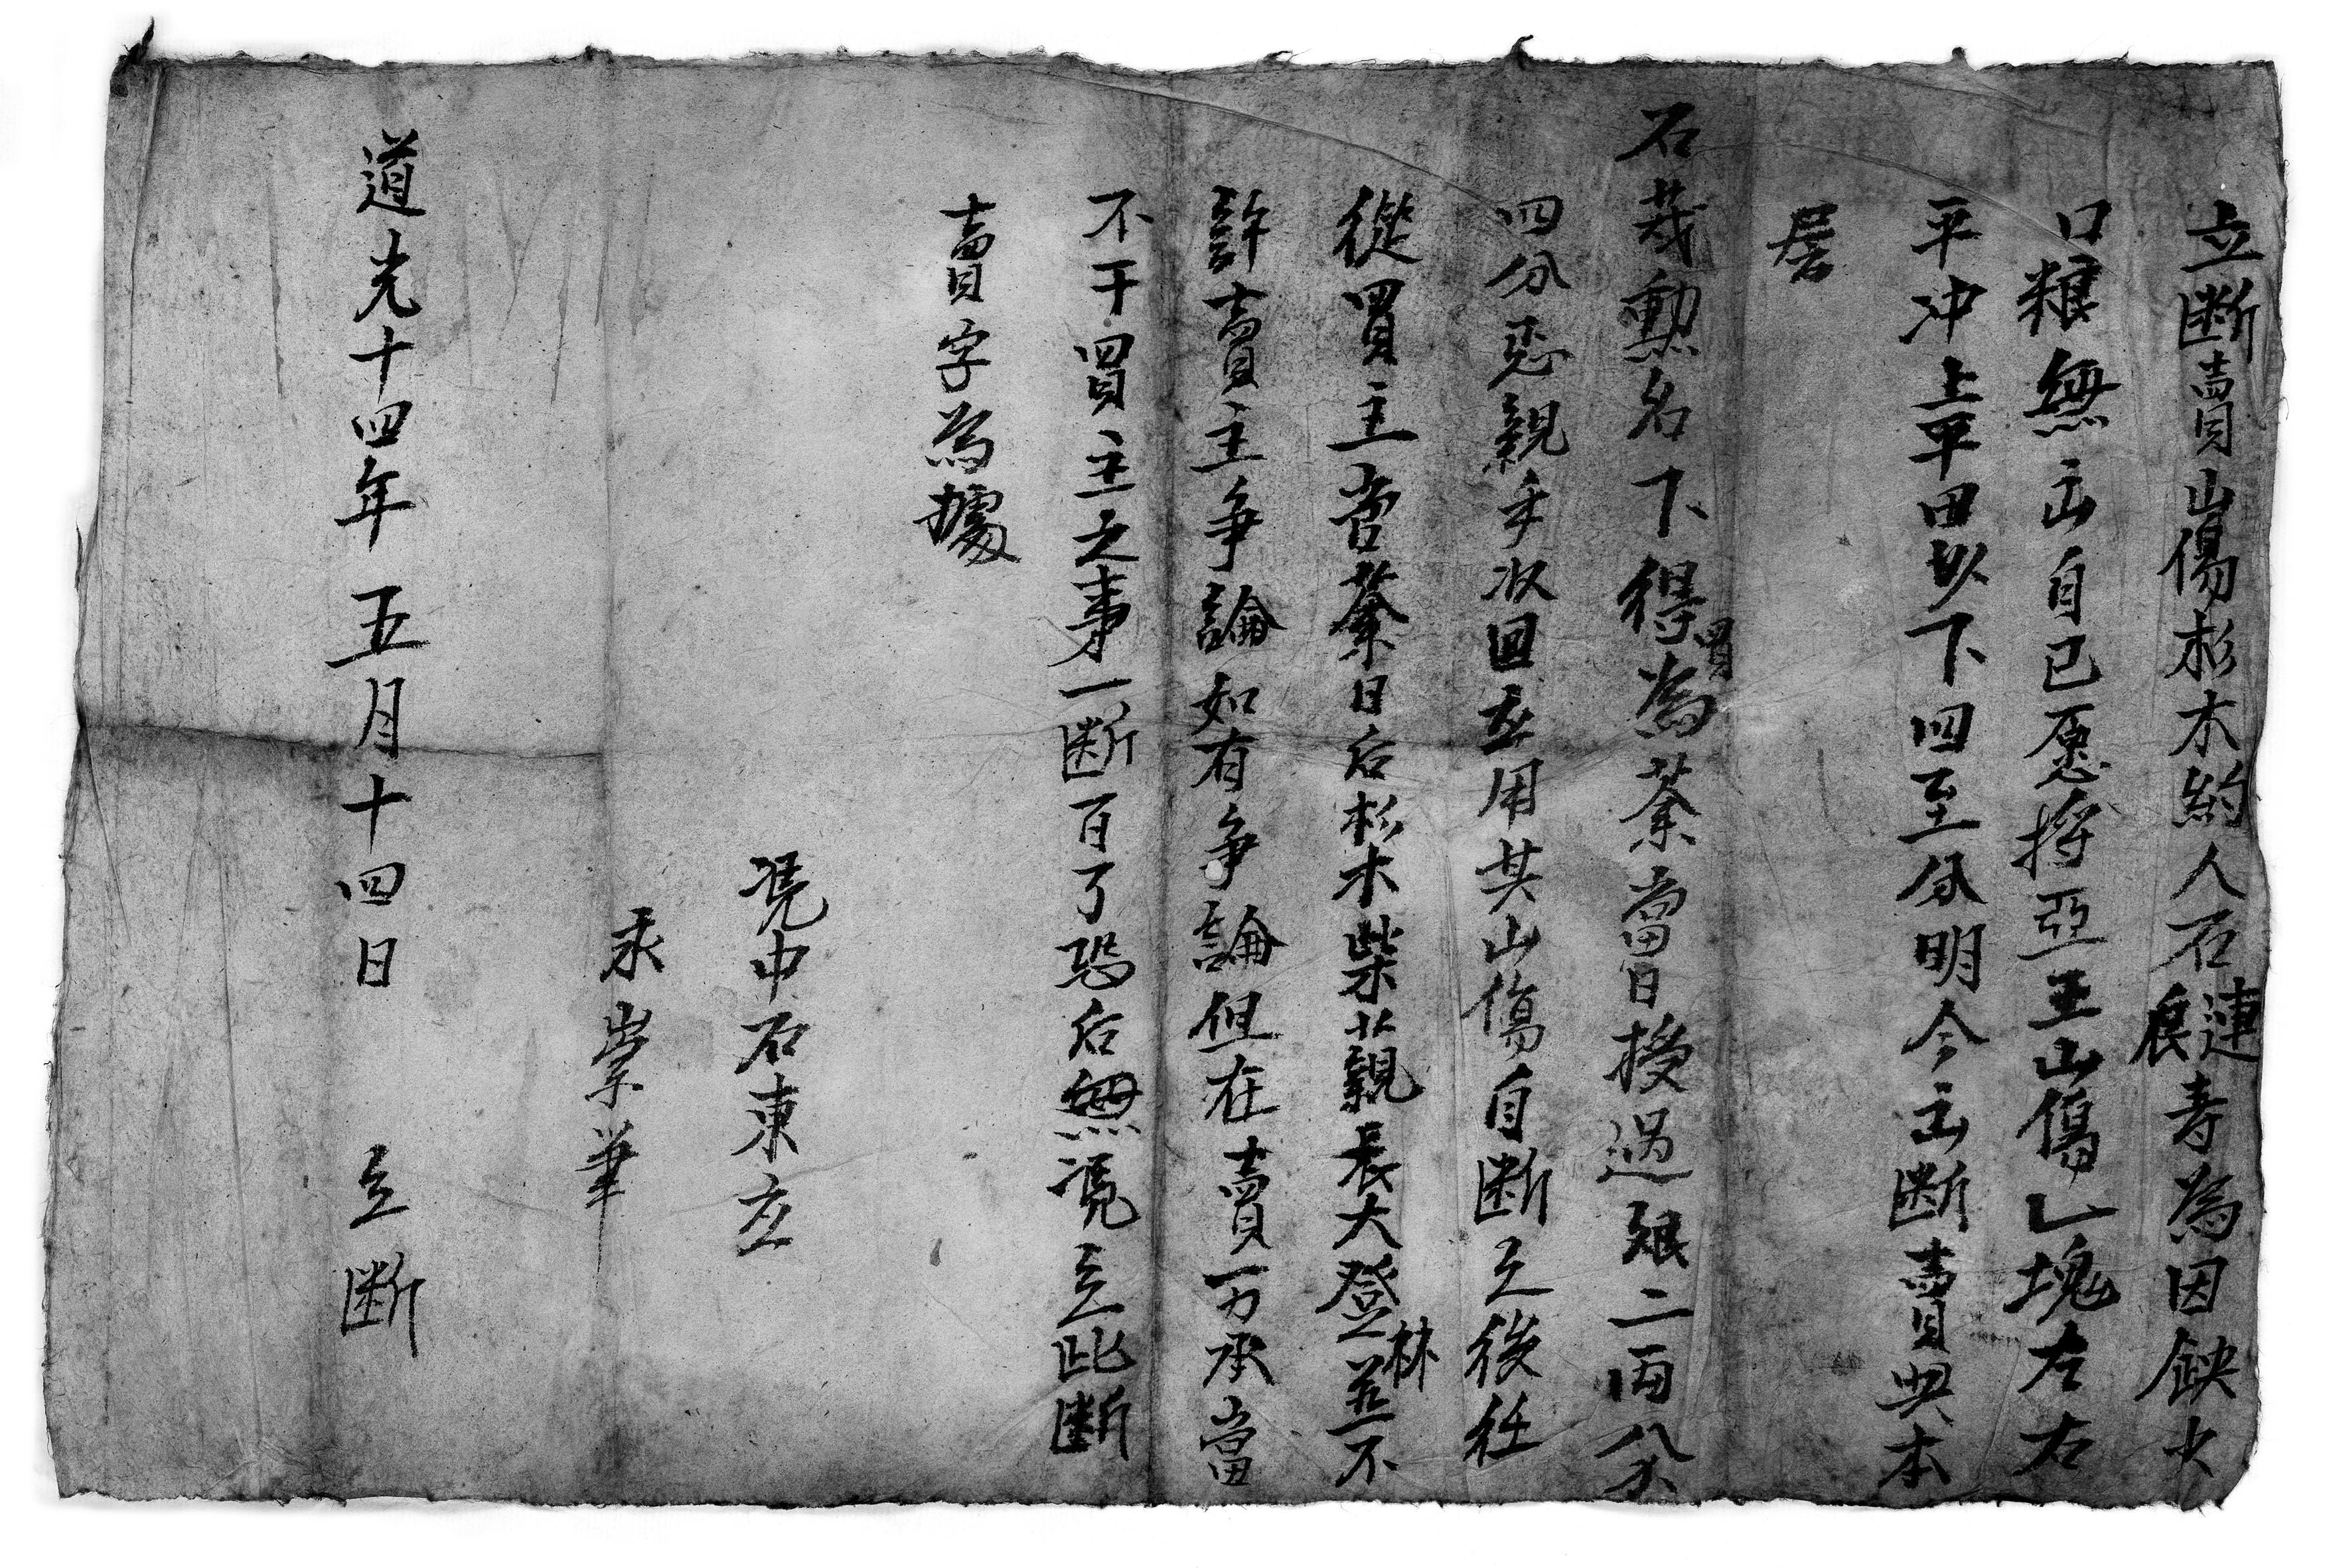 立断賣山傷杉木約人石連展寿為因鈌少
口粮無出自己愿将亞王山傷乚塊左右
平冲上平田以下四至分明今立断賣與本
居
石茂勳名下得買為業當日授過銀二両八分
四分恶親手收回应用其山傷自断之後任
從買主管業日后杉木柴親長大登林並不
許賣主争論如有争論但在賣一方承當
不干買主之事一断百了恐后無凴立此断
賣字為據
凴中石東应
永崇筆
道光十四年五月十四日 立断